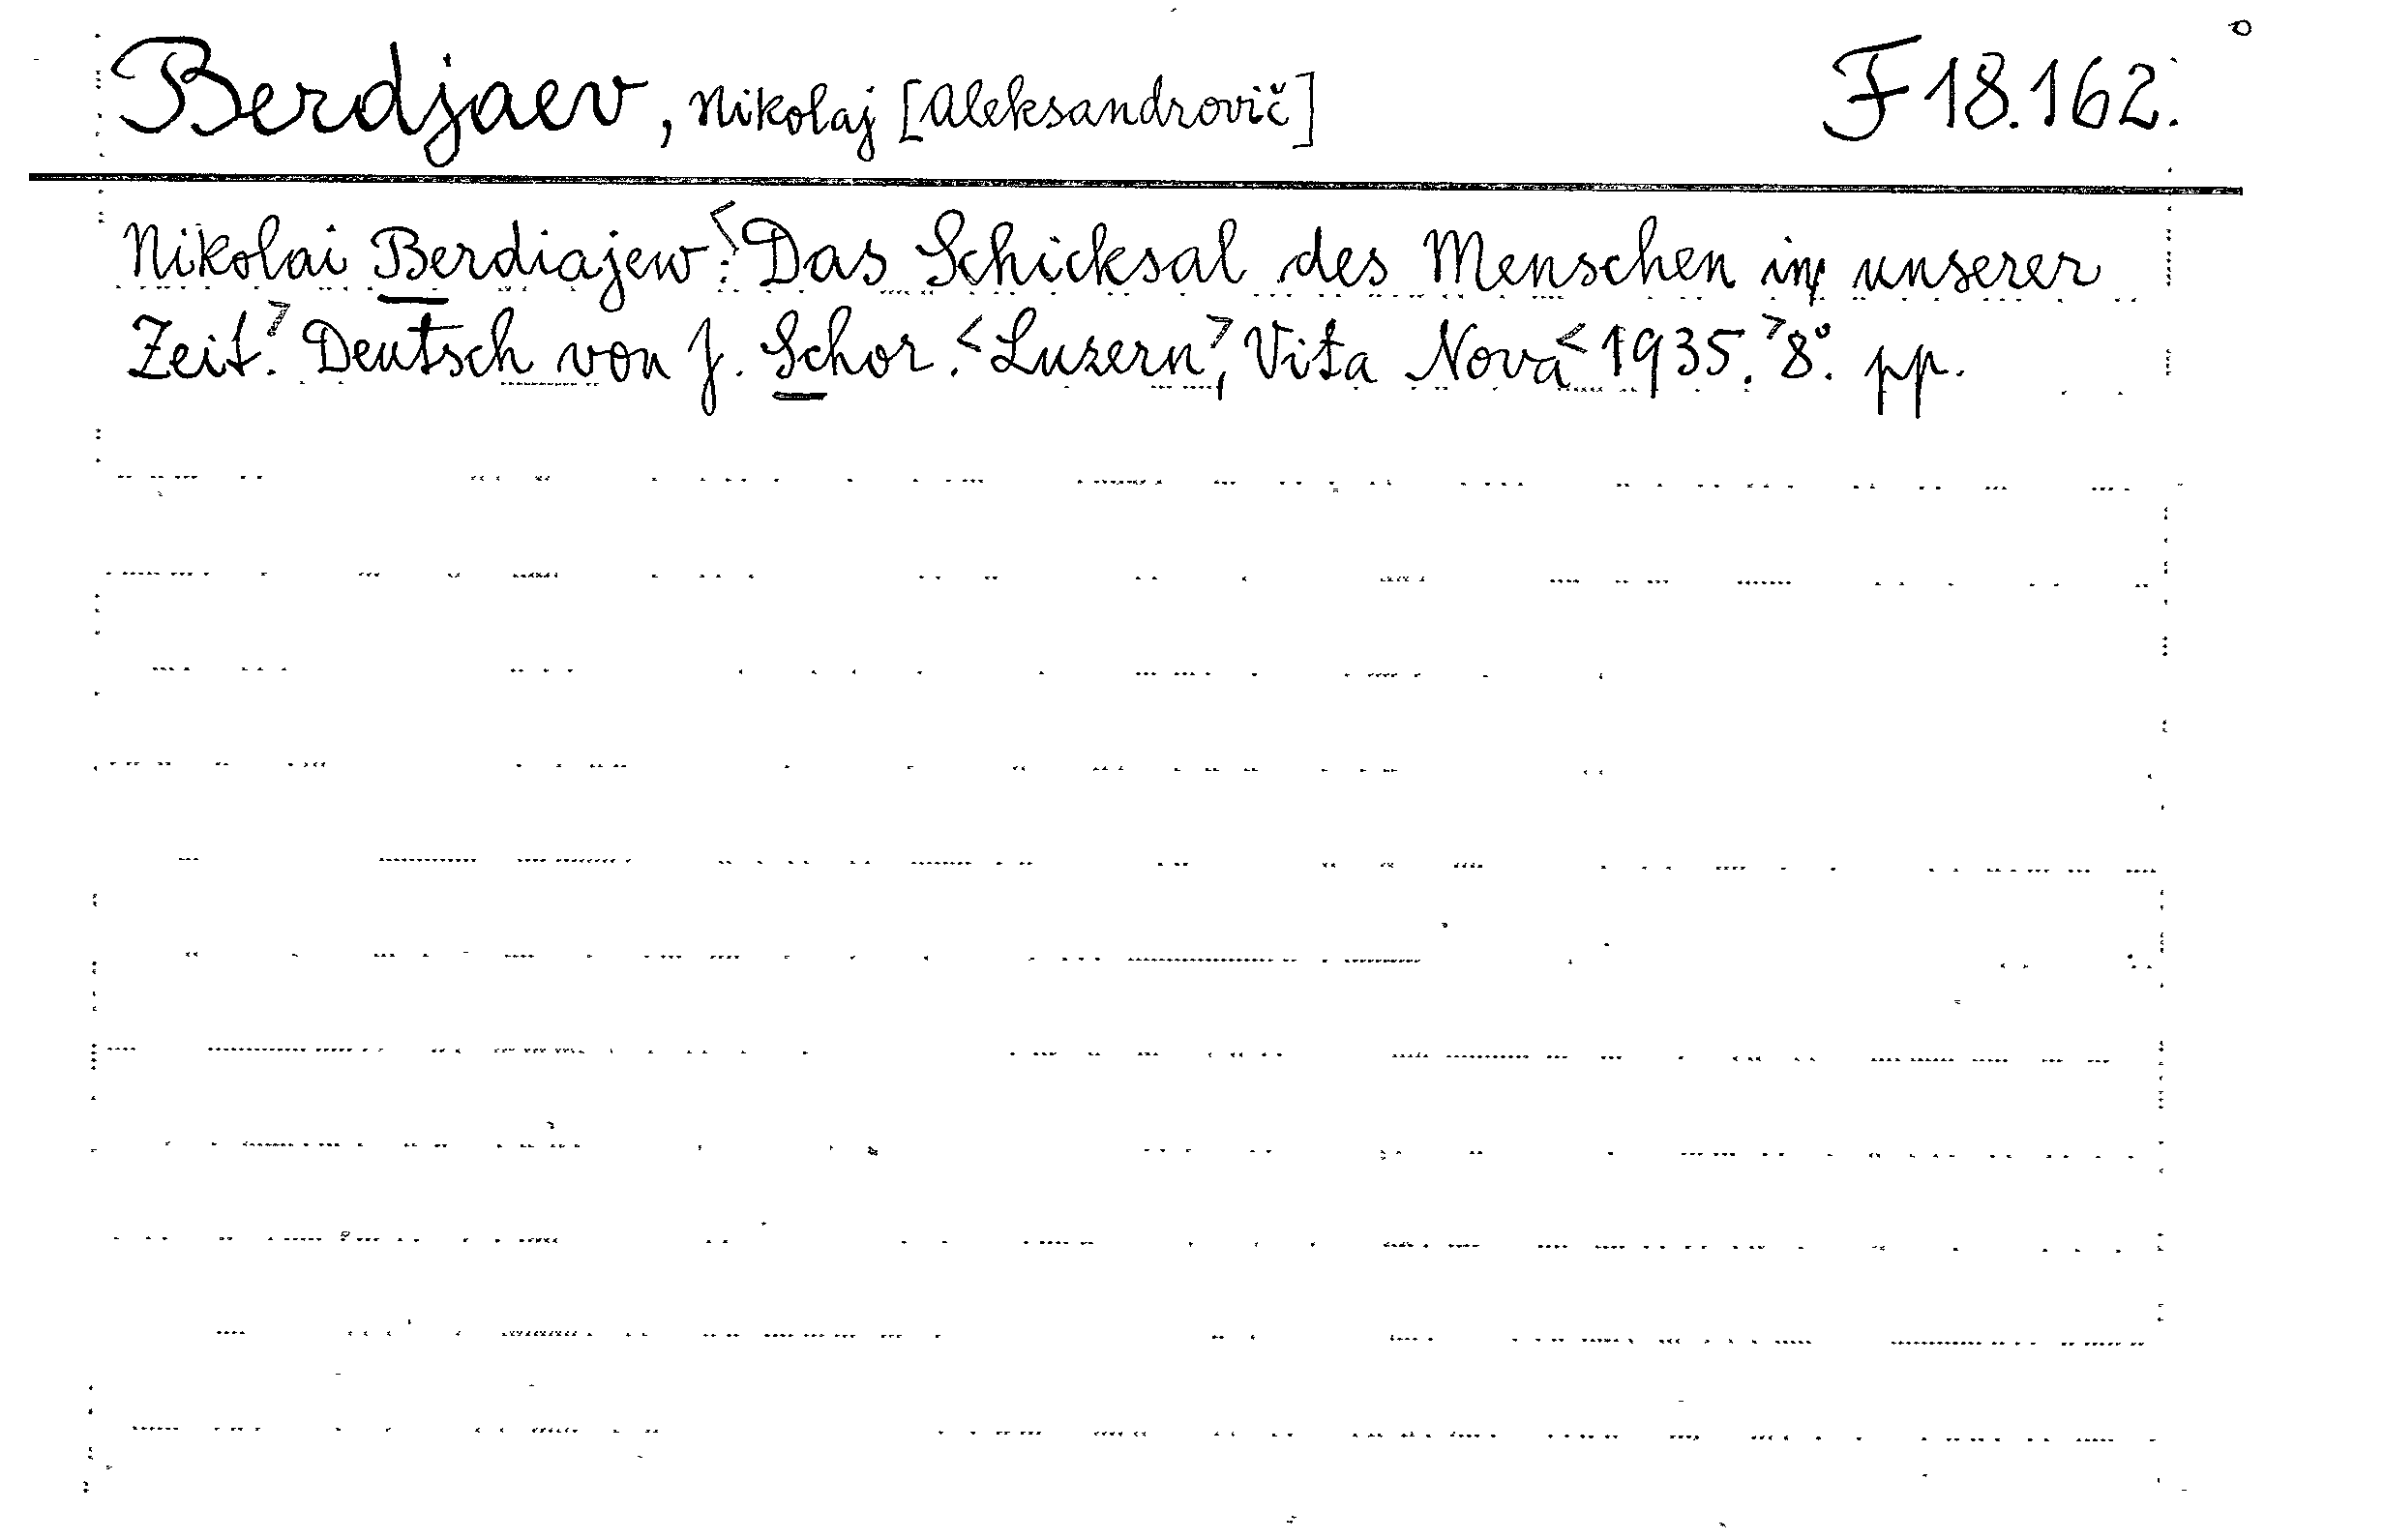 Berdjaev, Nikolaj [Aleksandrovič] F 18.162.
Nikolai Berdiajew: <Das Schicksal des Menschen in unserer
Zeit.> Deutsch von J. Schor. <Luzern>, Vita Nova <1935.> 8°. pp.